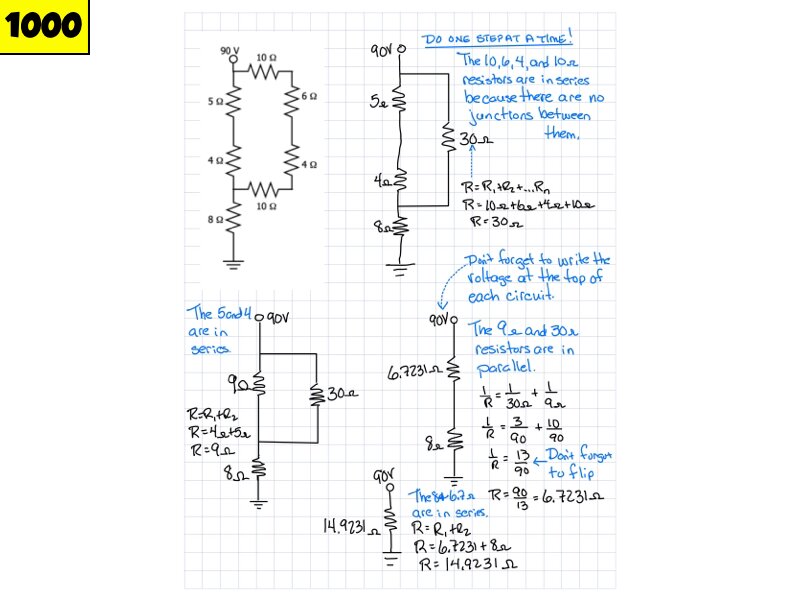 1000
90 V
10 Ω
5 Ω
6 Ω
4 Ω
4 Ω
10 Ω
8 Ω
DO ONE STEP AT A TIME!
90V
The 10, 6, 4, and 10Ω
resistors are in series
because there are no
junctions between
them.
5Ω
30Ω
4Ω
8Ω
R=R₁+R₂+...Rₙ
R=10Ω+6Ω+4Ω+10Ω
R=30Ω
Don't forget to write the
voltage at the top of
each circuit.
The 5 and 4
are in
series.
90V
9Ω
30Ω
R=R₁+R₂
R=4Ω+5Ω
R=9Ω
8Ω
90V
The 9Ω and 30Ω
resistors are in
parallel.
6.7231Ω
8Ω
1/R = 1/30Ω + 1/9Ω
1/R = 3/90 + 10/90
1/R = 13/90 ← Don't forget
to flip
R = 90/13 = 6.7231Ω
90V
14.9231Ω
The 8+6.7Ω
are in series.
R=R₁+R₂
R=6.7231+8Ω
R=14.9231Ω